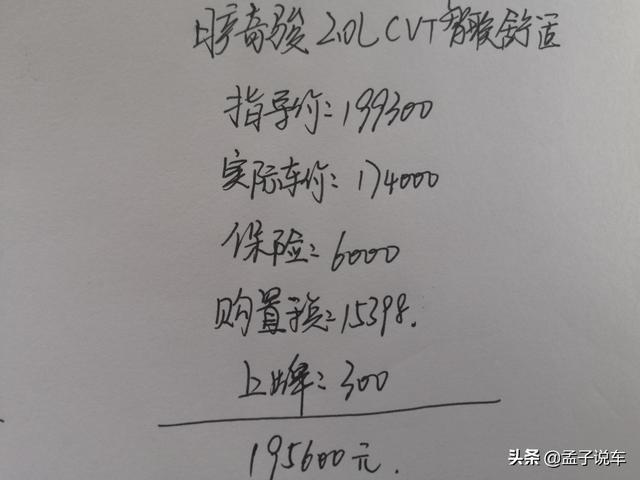 日产奇骏 2.0L CVT 智联舒适
指导价:199300
实际车价:174000
保险:6000
购置税:15398.
上牌:300
195600元.
头条 @孟子说车